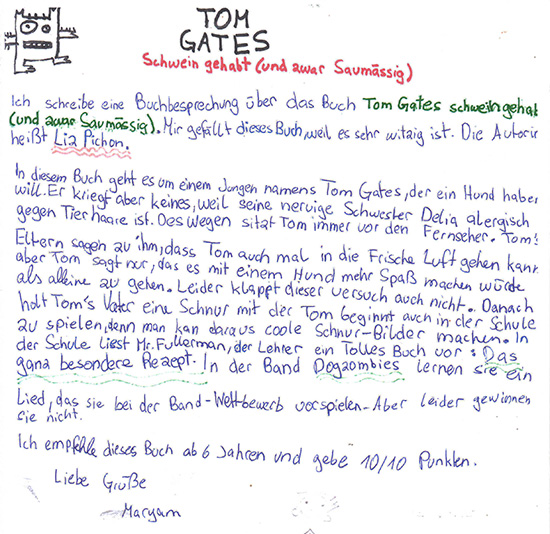 TOM
GATES
Schwein gehabt (und zwar Saumässig)
Ich schreibe eine Buchbesprechung über das Buch Tom Gates schwein gehab
(und zwar Saumässig). Mir gefällt dieses Buch, weil es sehr witzig ist. Die Autorin
heißt Liz Pichon.
In diesem Buch geht es um einem Jungen namens Tom Gates, der ein Hund haben
will. Er kriegt aber keines, weil seine nervige Schwester Delia alergisch
gegen Tierhaare ist. Deswegen sitzt Tom immer vor den Fernseher. Tom's
Eltern sagen zu ihm, dass Tom auch mal in die Frische Luft gehen kann
aber Tom sagt nur, das es mit einem Hund mehr Spaß machen würde
als alleine zu gehen. Leider klappt dieser versuch auch nicht. Danach
holt Tom's Vater eine Schnur mit der Tom Beginnt auch in der Schule
zu spielen, denn man kan daraus coole Schnur-Bilder machen. In
der Schule liest Mr. Fullerman, der Lehrer ein Tolles Buch vor: Das
ganz besondere Rezept. In der Band Dogzombies lernen sie ein
Lied, das sie bei der Band-Wettbewerb vorspielen. Aber leider gewinnen
sie nicht.
Ich empfehle dieses Buch ab 6 Jahren und gebe 10/10 Punkten.
Liebe Grüße
Maryam